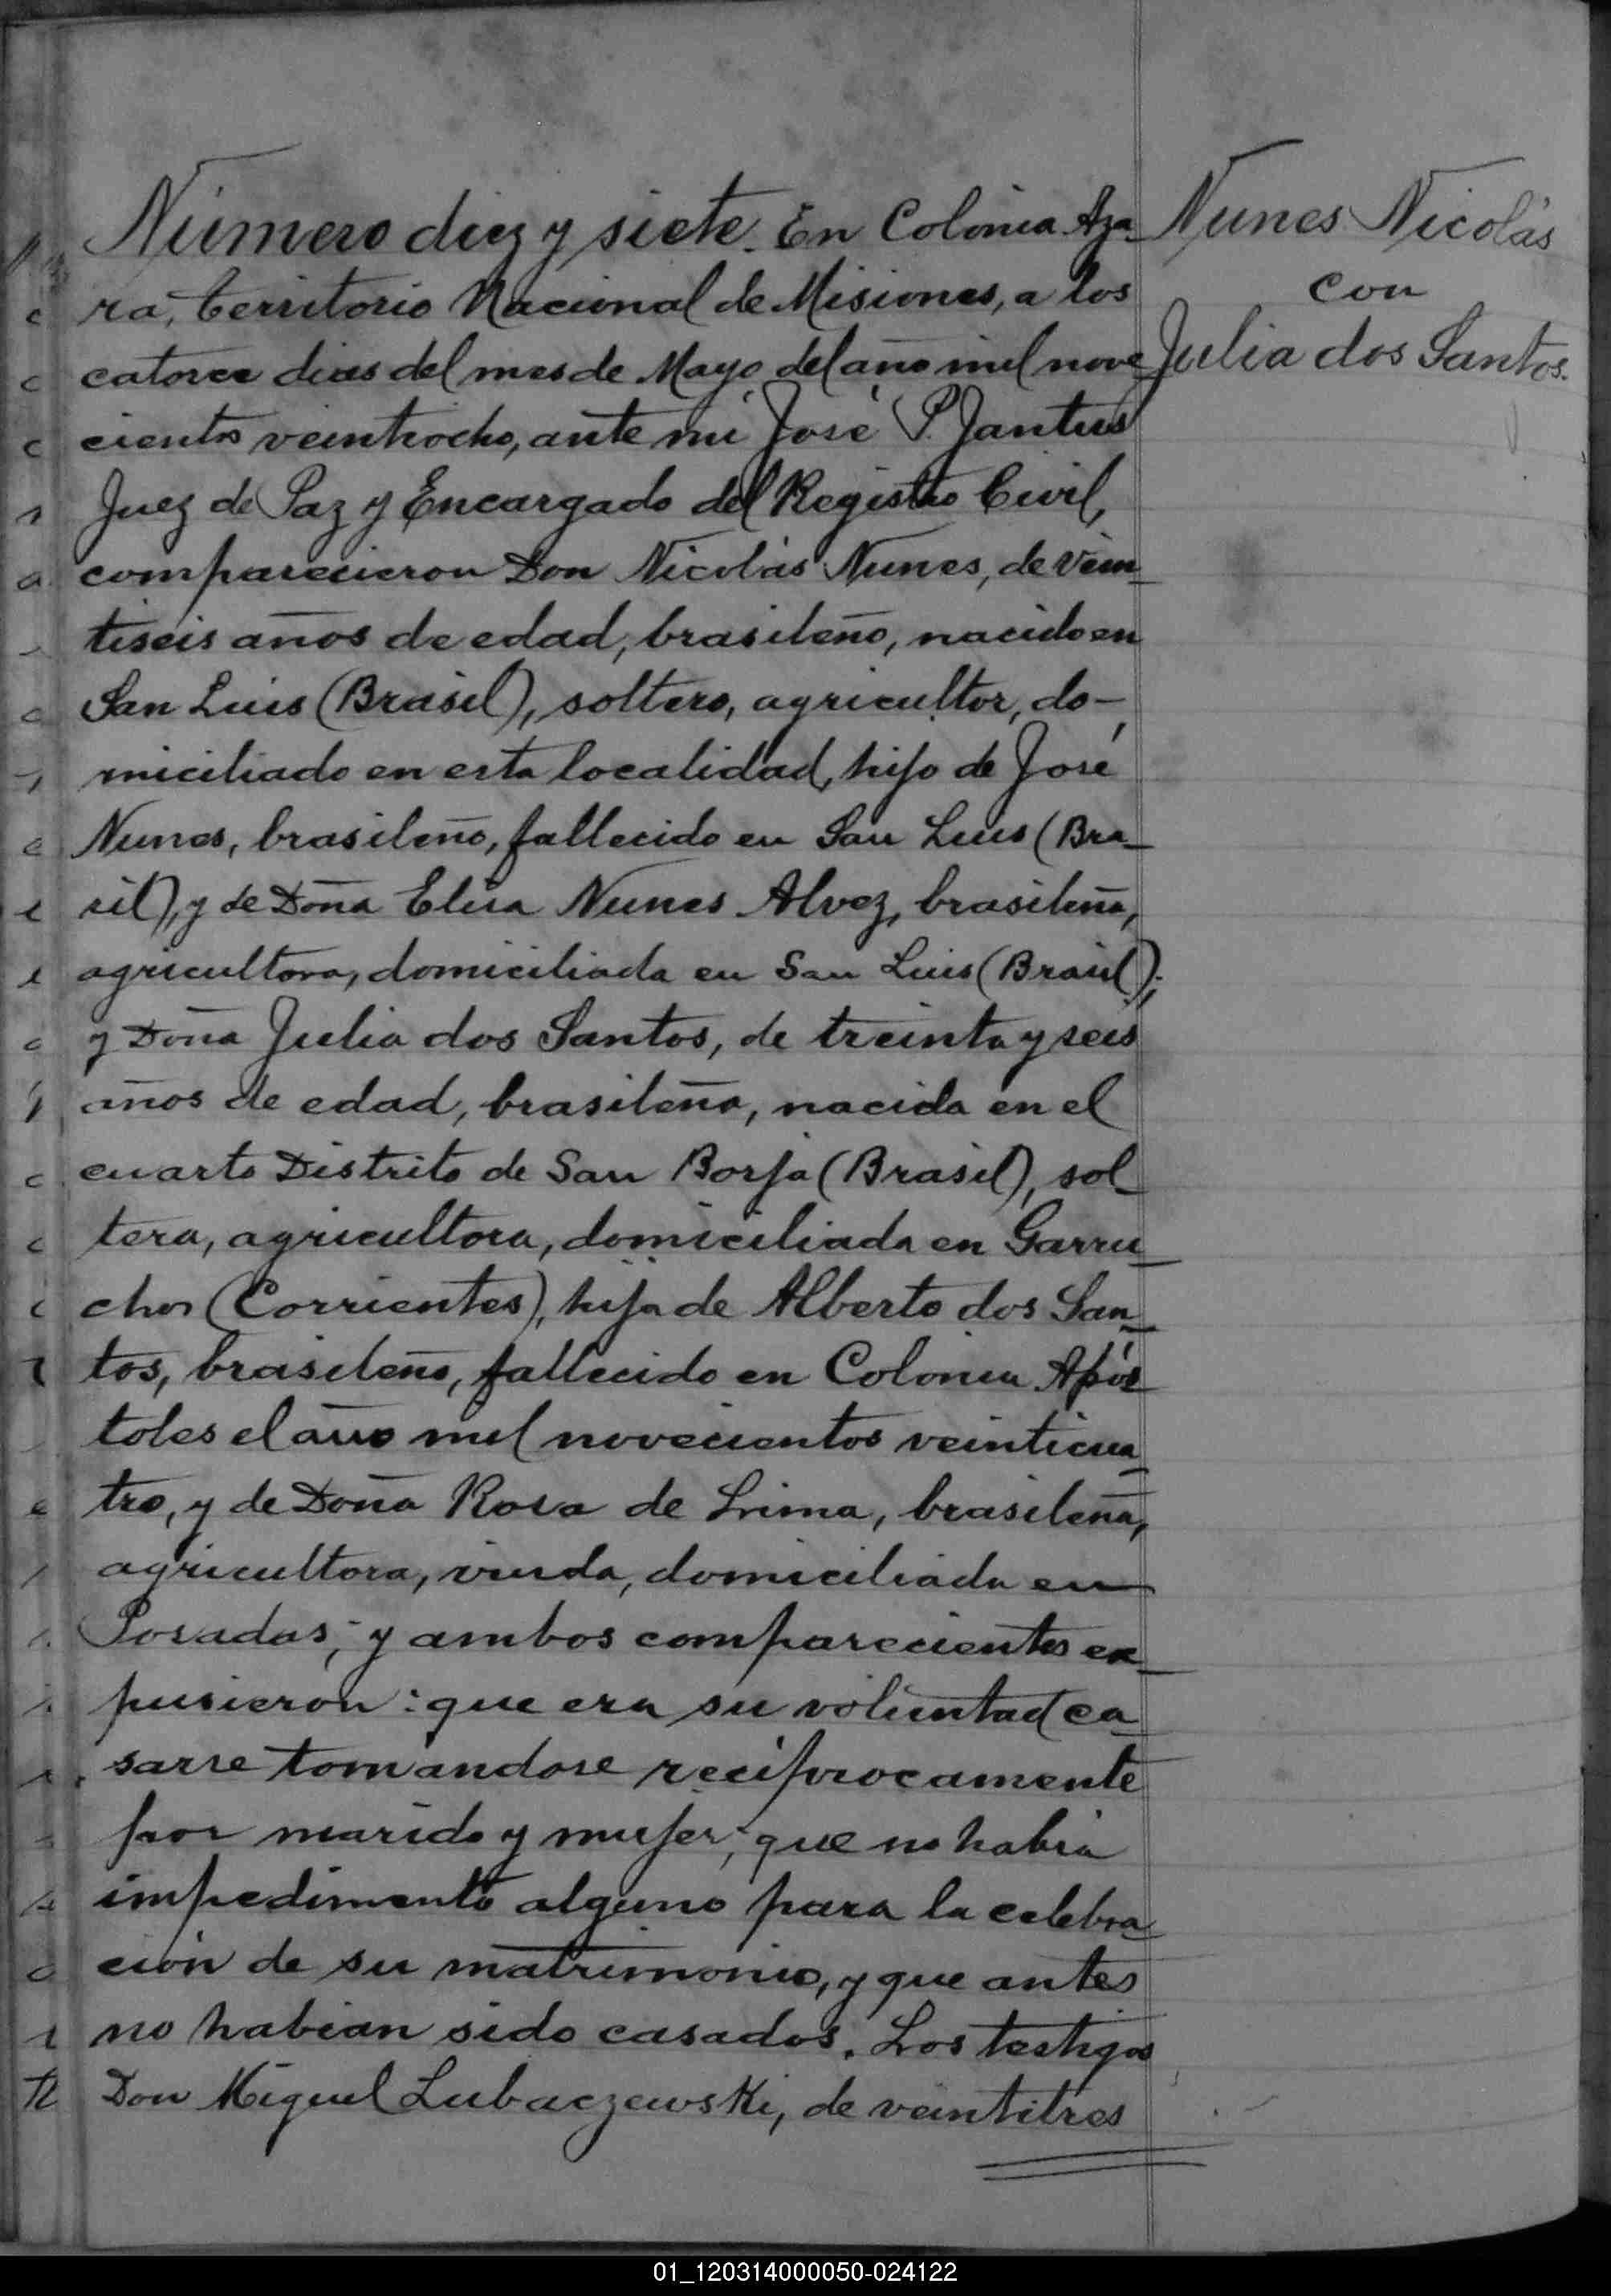 Número diez y siete. En Colonia Aza-
ra, territorio Nacional de Misiones, a los
catorce dias del mes de Mayo del año mil nove
cientos veintiocho, ante mí José P. Jantus
Juez de Paz y Encargado del Registro Civil,
comparecieron Don Nicolás Nunes, de vein-
tiseis años de edad, brasileño, nacido en
San Luis (Brasil), soltero, agricultor, do-
miciliado en esta localidad, hijo de José
Nunes, brasileño, fallecido en San Luis (Bra-
sil), y de Doña Elisa Nunes Alvez, brasileña,
agricultora, domiciliada en San Luis (Brasil);
y Doña Julia dos Santos, de treinta y seis
años de edad, brasileña, nacida en el
cuarto Distrito de San Borja (Brasil), sol-
tera, agricultora, domiciliada en Garru-
chos (Corrientes), hija de Alberto dos San-
tos, brasileño, fallecido en Colonia Após-
toles el año mil novecientos veinticua-
tro, y de Doña Rosa de Lima, brasileña,
agricultora, viuda, domiciliada en
Posadas; y ambos comparecientes ex-
pusieron: que era su voluntad ca-
sarse tomandose recíprocamente
por marido y mujer; que no habia
impedimento alguno para la celebra-
ción de su matrimonio, y que antes
no habian sido casados. Los testigos
Don Miguel Lubaczewski, de veintitres
Nunes Nicolás
con
Julia dos Santos.
01_120314000050-024122